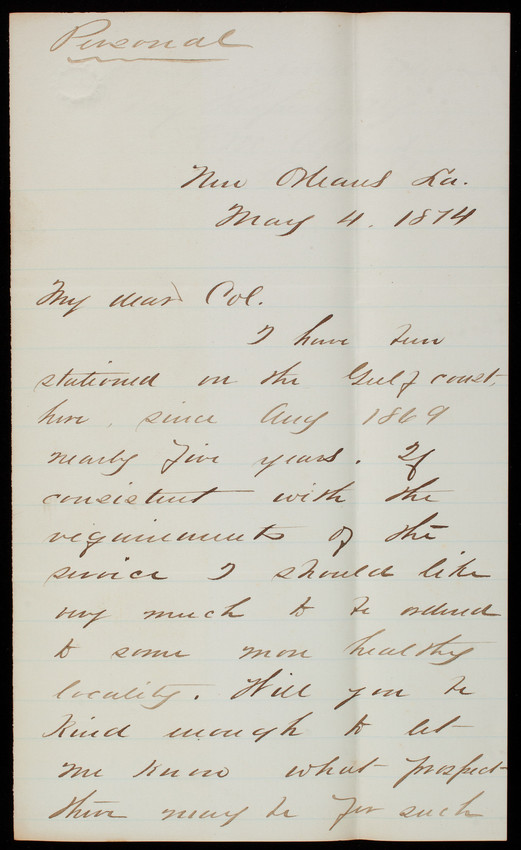 Personal
New Orleans La.
May 4. 1874
My dear Col.
I have been
stationed on the Gulf coast,
here, since Aug 1869
nearly five years. If
consistent with the
requirements of the
service I should like
very much to be ordered
to some more healthy
locality. Will you be
kind enough to let
me know what prospect
there may be for such